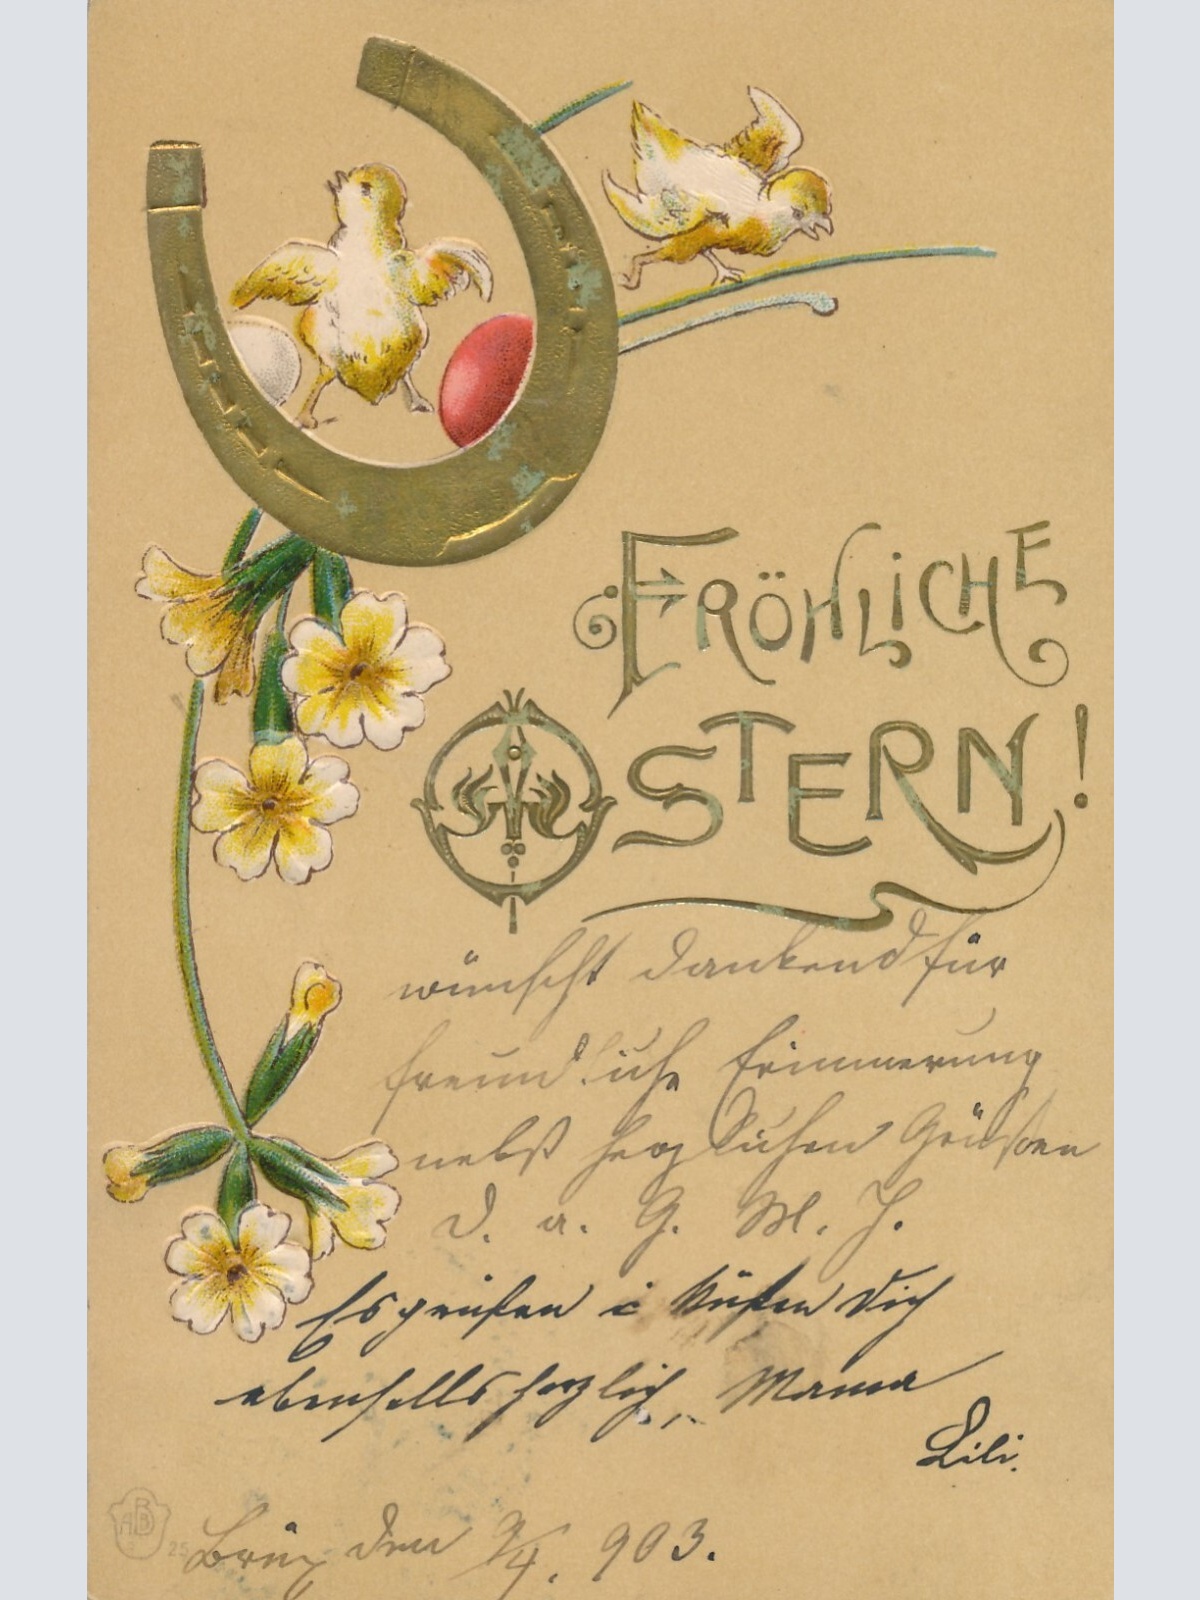 FRÖHLICHE
OSTERN!
wünscht dankend für
freundliche Erinnerung
nebst herzlichen Grüßen
D. a. G. M. J.
Es grüßen i küßen Dich
ebenfalls herzlich, Mama
Lili.
ABB
25
Brüx den 9/4. 903.